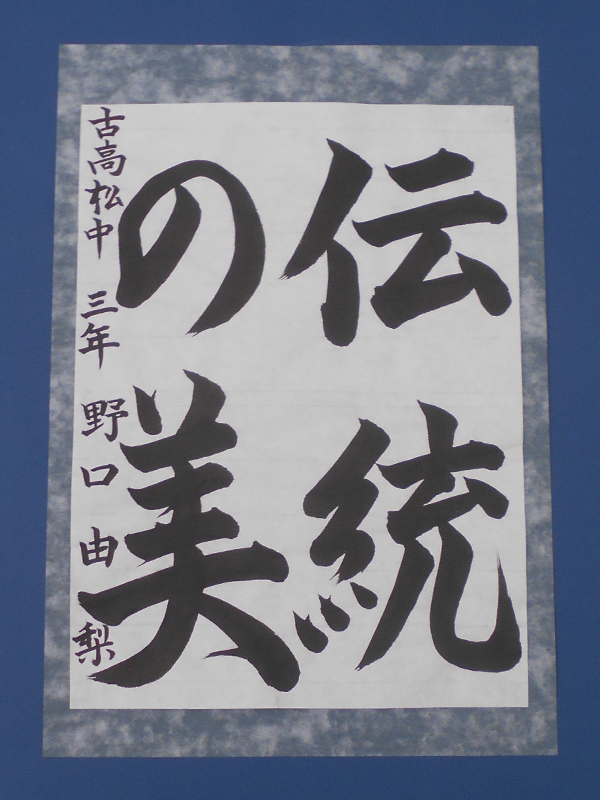 伝統
の美
古高松中 三年 野口由梨